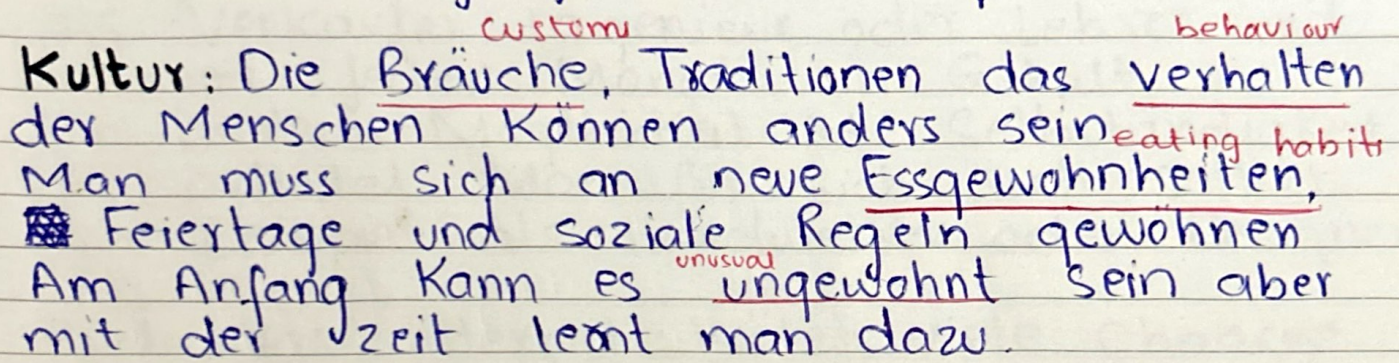 customs behaviour
Kultur: Die Bräuche, Traditionen das verhalten
der Menschen können anders sein
eating habits
Man muss sich an neue Essgewohnheiten,
Feiertage und soziale Regeln gewöhnen
unusual
Am Anfang kann es ungewohnt sein aber
mit der zeit lernt man dazu.